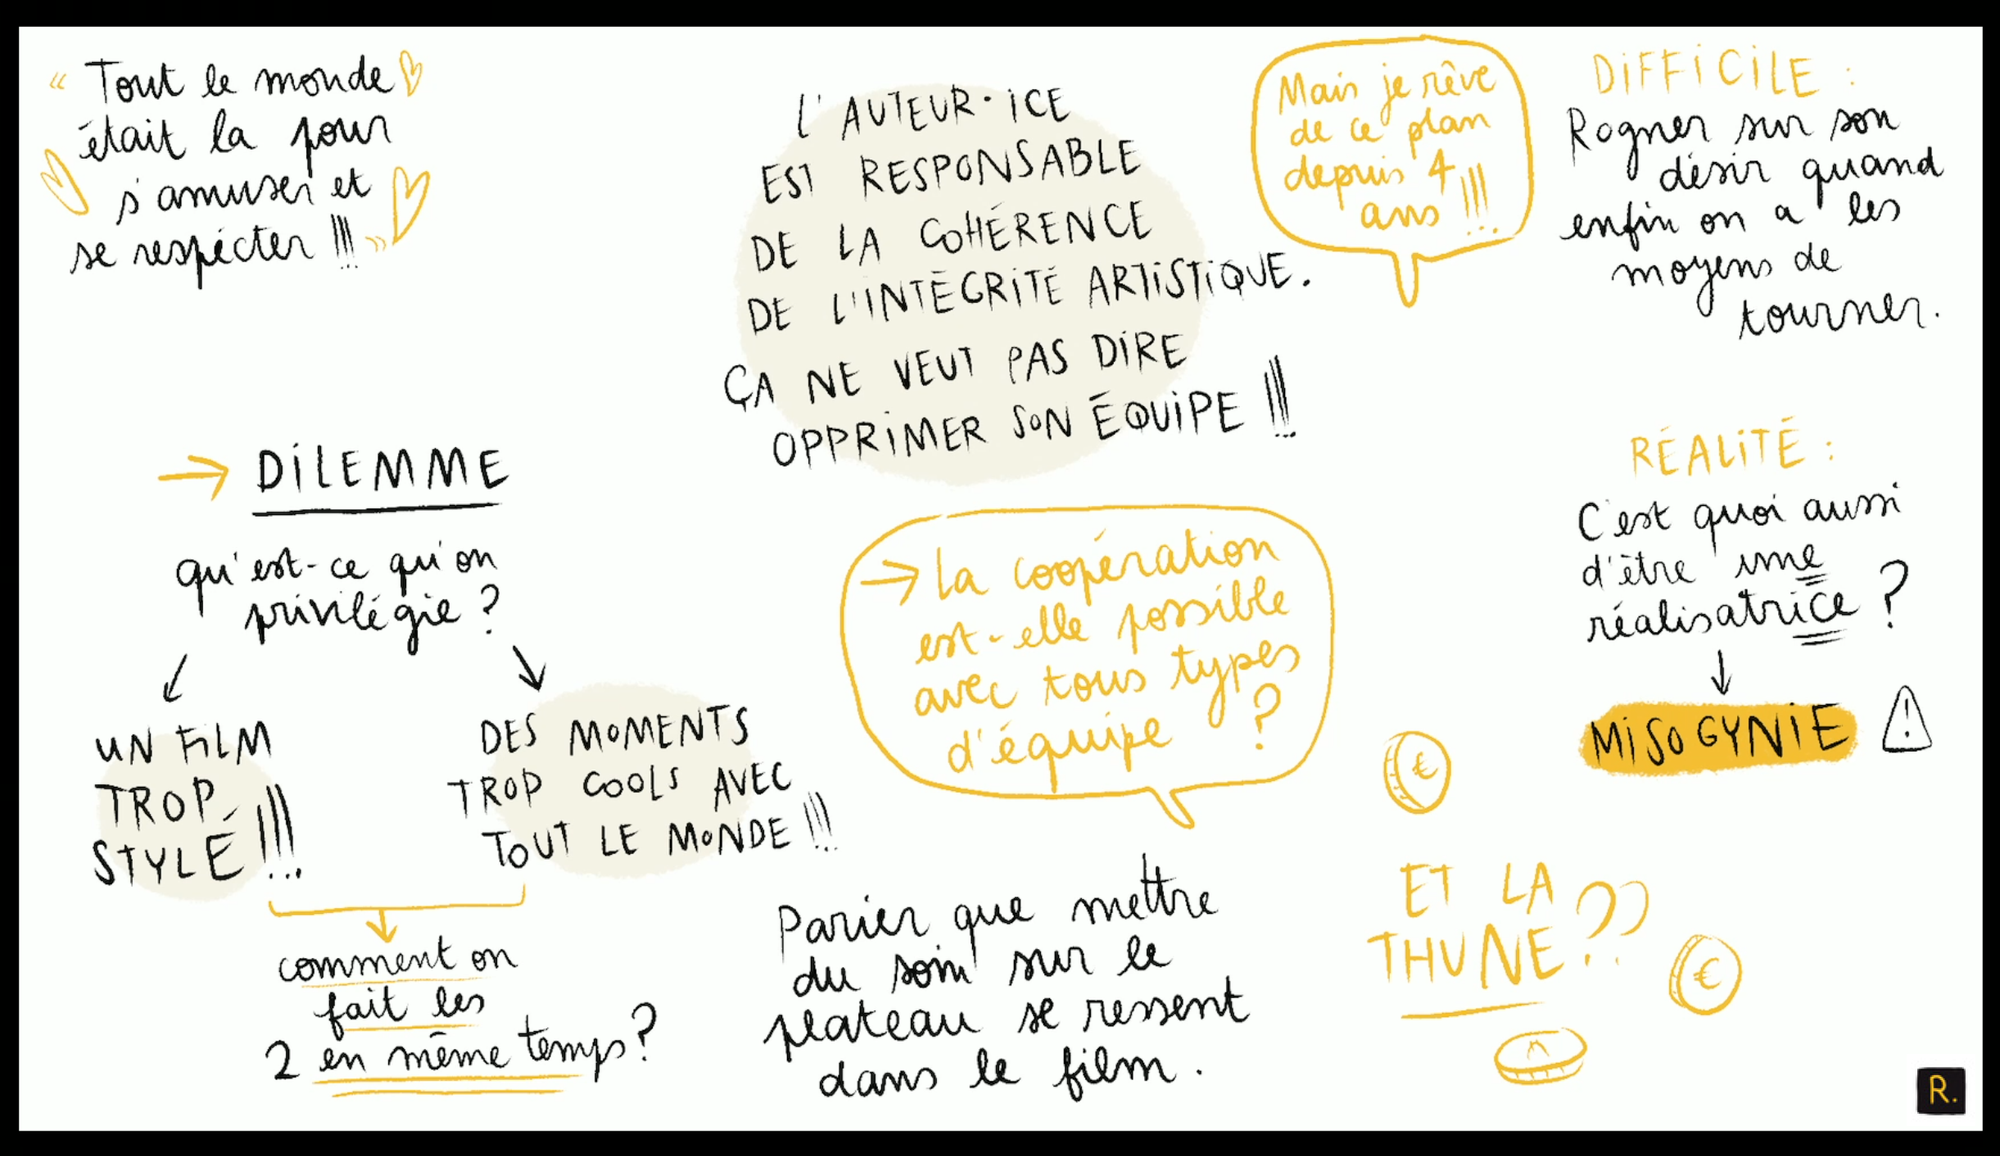 « Tout le monde
était la pour
s'amuser et
se respecter !!! »
→ DILEMME
qu'est-ce qu'on
privilégie ?
UN FILM
TROP
STYLÉ !!!
DES MOMENTS
TROP COOLS AVEC
TOUT LE MONDE !!!
comment on
fait les
2 en même temps ?
L'AUTEUR·ICE
EST RESPONSABLE
DE LA COHÉRENCE
DE L'INTÉGRITÉ ARTISTIQUE.
ÇA NE VEUT PAS DIRE
OPPRIMER SON ÉQUIPE !!!
→ La coopération
est-elle possible
avec tous types
d'équipe ?
Parier que mettre
du soin sur le
plateau se ressent
dans le film.
Mais je rêve
de ce plan
depuis 4
ans !!!
DIFFICILE :
Rogner sur son
désir quand
enfin on a les
moyens de
tourner.
RÉALITÉ :
C'est quoi aussi
d'être une
réalisatrice ?
MISOGYNIE
!
€
ET LA
THUNE ??
€
R.